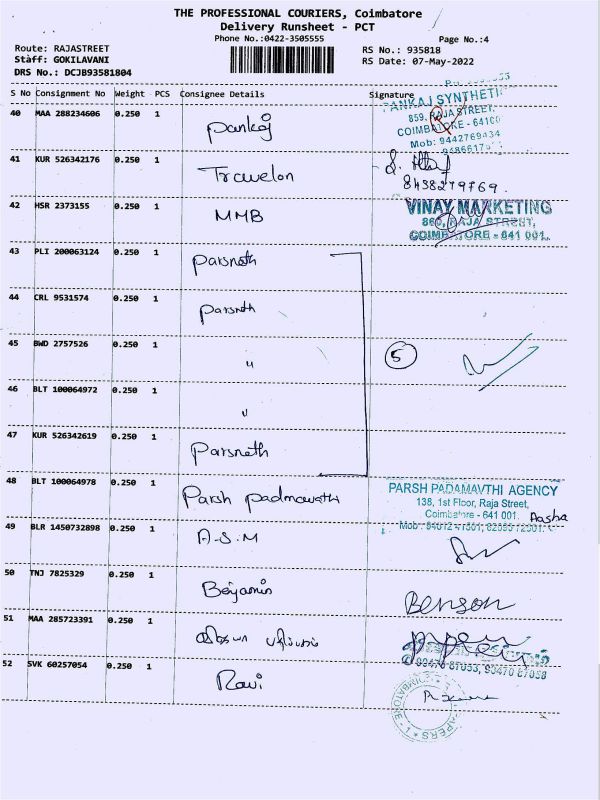 THE PROFESSIONAL COURIERS, Coimbatore
Delivery Runsheet - PCT
Phone No.:0422-3505555
Page No.:4
Route: RAJASTREET
RS No.: 935818
Staff: GOKILAVANI
RS Date: 07-May-2022
DRS No.: DCJB93581804
S No Consignment No Weight PCS Consignee Details Signature
40 MAA 288234606 0.250 1 Pankaj
PANKAJ SYNTHETI
859, RAJA STREET,
COIMBATORE - 64100
Mob: 9442769434
41 KUR 526342176 0.250 1 Travelon
8438279769.
42 HSR 2373155 0.250 1 MMB
VINAY MARKETING
RAJA STREET,
COIMBATORE - 641 001.
43 PLI 200063124 0.250 1 Parsnath
44 CRL 9531574 0.250 1 Parsnath
45 BWD 2757526 0.250 1 "
5
46 BLT 100064972 0.250 1 "
47 KUR 526342619 0.250 1 Parsnath
48 BLT 100064978 0.250 1 Parsh Padmavathi
PARSH PADAMAVTHI AGENCY
138, 1st Floor, Raja Street,
Coimbatore - 641 001. Aasha
49 BLR 1450732898 0.250 1 A.S.M
50 TNJ 7825329 0.250 1 Benjamin
Benson
51 MAA 285723391 0.250 1
90470 87058
52 SVK 60257054 0.250 1 Ravi
COIMBATORE - 1